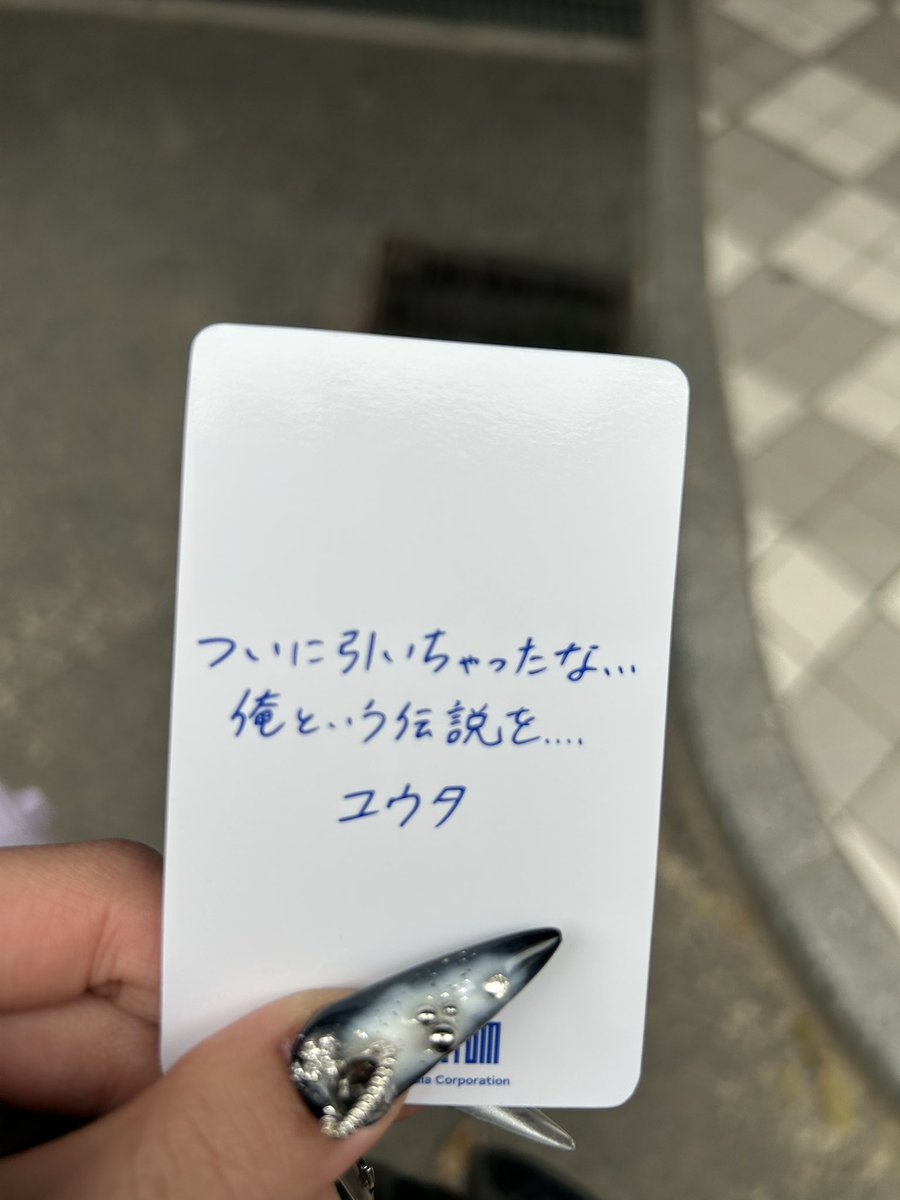 ついに引いちゃったな...
俺という伝説を....
ユウタ
Corporation